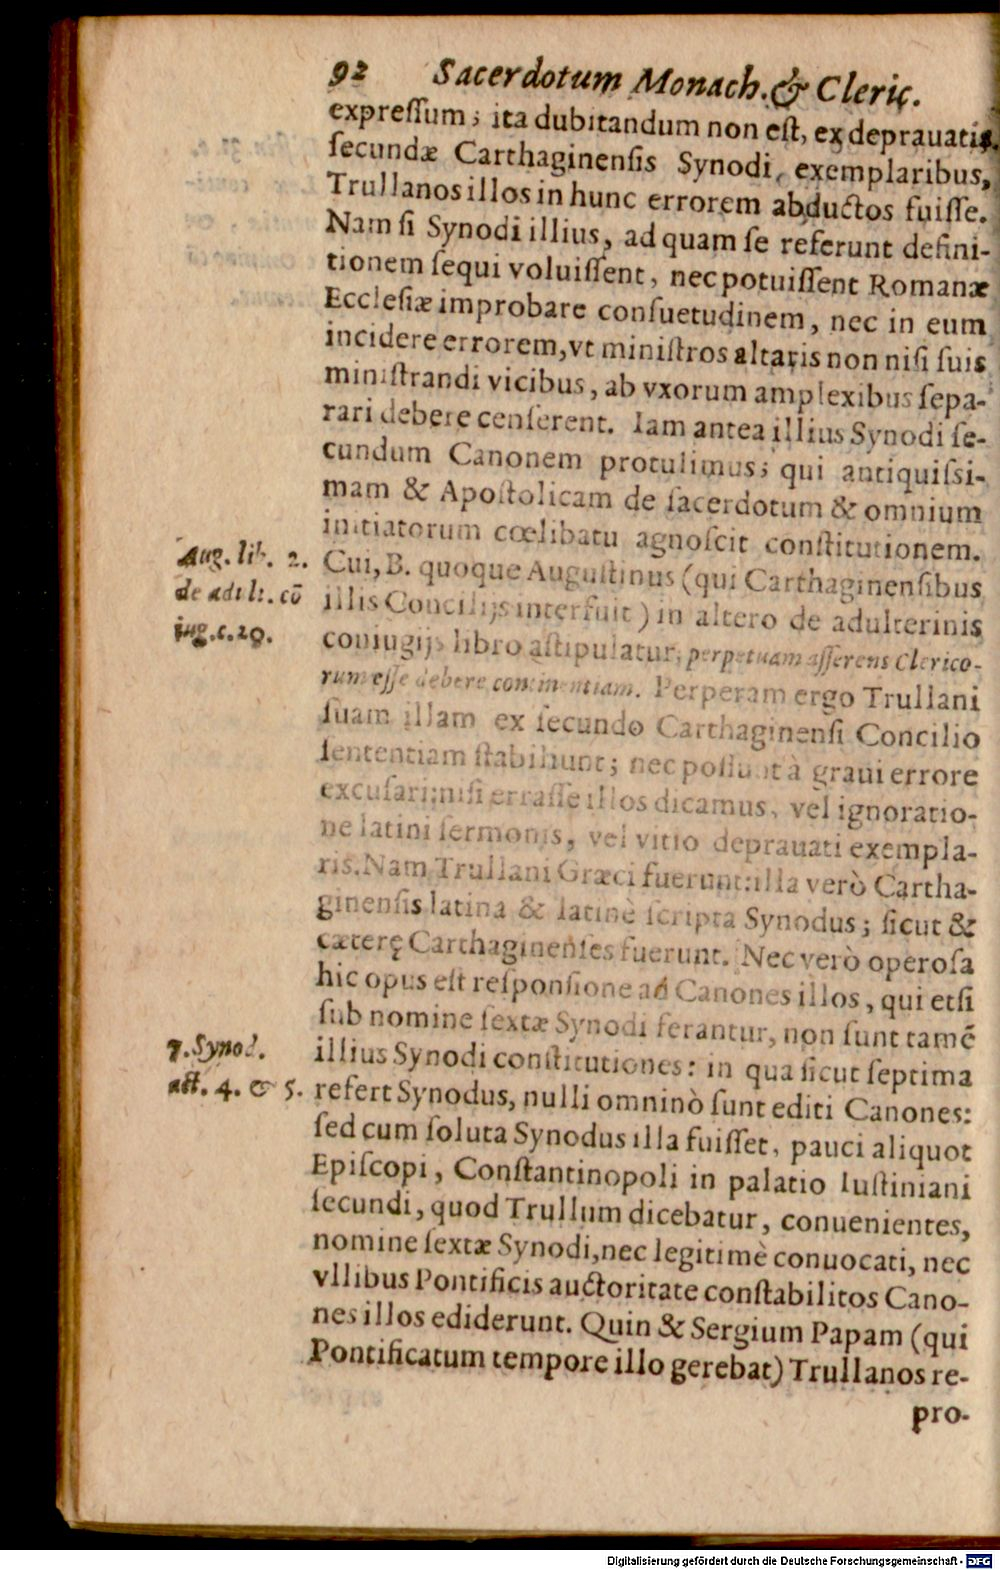 92 Sacerdotum Monach. & Cleric.
expreſſum; ita dubitandum non eſt, ex deprauatis
ſecundæ Carthaginenſis Synodi, exemplaribus,
Trullanos illos in hunc errorem abductos fuiſſe.
Nam ſi Synodi illius, ad quam ſe referunt defini-
tionem ſequi voluiſſent, nec potuiſſent Romanæ
Eccleſiæ improbare conſuetudinem, nec in eum
incidere errorem, vt miniſtros altaris non niſi ſuis
miniſtrandi vicibus, ab vxorum amplexibus ſepa-
rari debere cenſerent. Iam antea illius Synodi ſe-
cundum Canonem protulimus; qui antiquiſsi-
mam & Apoſtolicam de ſacerdotum & omnium
initiatorum cœlibatu agnoſcit conſtitutionem.
Aug. lib. 2.
de adult. cō
iug. c. 20.
Cui, B. quoque Auguſtinus (qui Carthaginenſibus
illis Concilijs interfuit) in altero de adulterinis
coniugijs libro aſtipulatur, perpetuam aſſerens Clerico-
rum eſſe debere continentiam. Perperam ergo Trullani
ſuam illam ex ſecundo Carthaginenſi Concilio
ſententiam ſtabiliunt; nec poſſunt à graui errore
excuſari; niſi erraſſe illos dicamus, vel ignoratio-
ne latini ſermonis, vel vitio deprauati exempla-
ris. Nam Trullani Græci fuerunt: illa verò Cartha-
ginenſis latina & latinè ſcripta Synodus; ſicut &
cæterę Carthaginenſes fuerunt. Nec verò operoſa
hic opus eſt reſponſione ad Canones illos, qui etſi
ſub nomine ſextæ Synodi ferantur, non ſunt tamē
7. Synod.
act. 4. & 5.
illius Synodi conſtitutiones: in qua ſicut ſeptima
refert Synodus, nulli omninò ſunt editi Canones:
ſed cum ſoluta Synodus illa fuiſſet, pauci aliquot
Epiſcopi, Conſtantinopoli in palatio Iuſtiniani
ſecundi, quod Trullum dicebatur, conuenientes,
nomine ſextæ Synodi, nec legitimè conuocati, nec
vllibus Pontificis auctoritate conſtabilitos Cano-
nes illos ediderunt. Quin & Sergium Papam (qui
Pontificatum tempore illo gerebat) Trullanos re-
pro-
Digitalisierung gefördert durch die Deutsche Forschungsgemeinschaft - DFG